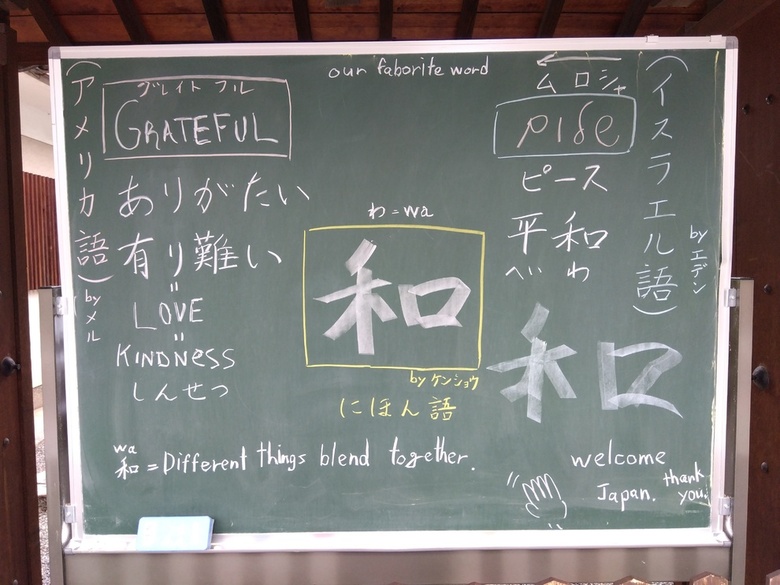 our faborite word
(アメリカ語)
by メル
グレイトフル
GRATEFUL
ありがたい
有り難い
=
LOVE
=
KINDNESS
しんせつ
わ=wa
和
by ケンショウ
にほん語
←
ムロシャ
שלום
ピース
平和
へい わ
和
(イスラエル語)
by エデン
wa
和=Different things blend together.
welcome
Japan.
thank
you.